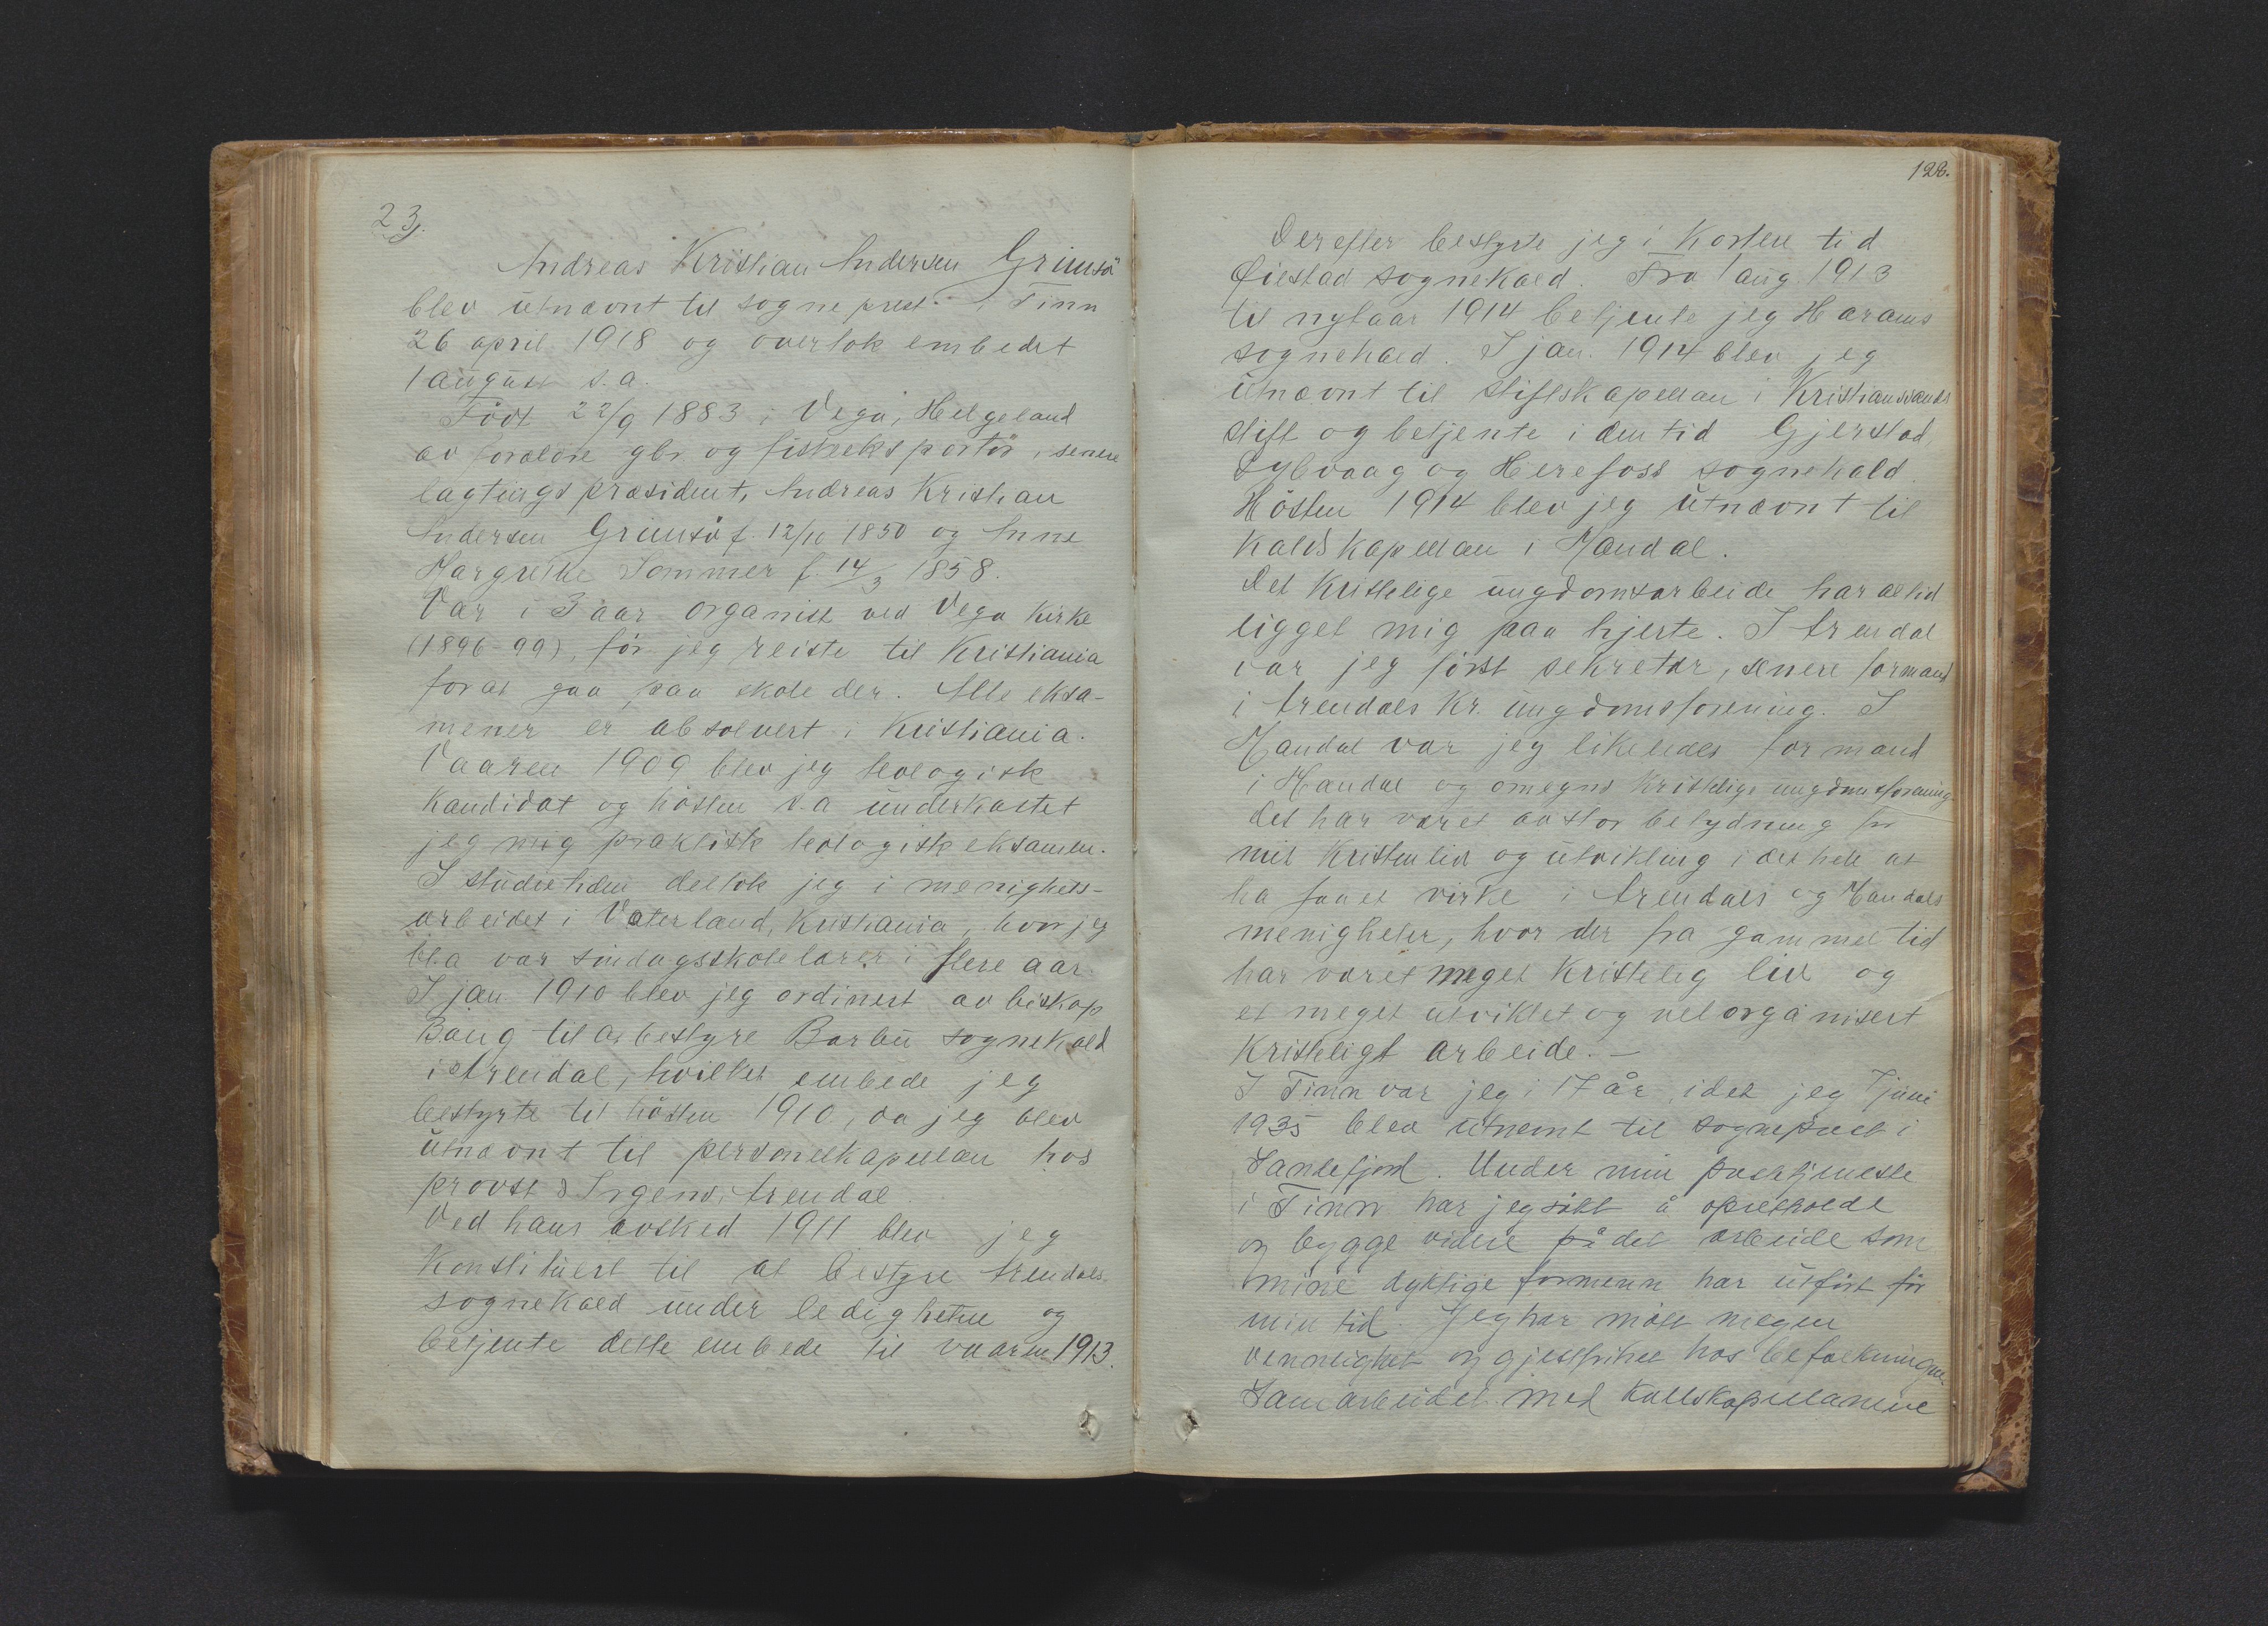 23.
Andreas Kristian Andersen Grimsö
blev utnævnt til sogneprest i Tinn
26 april 1918 og overtok embedet
1 august s.a.
Født 22/9 1883 i Vega, Helgeland
av forældre gbr. og fiskeeksportør, senere
lagtingspræsident, Andreas Kristian
Andersen Grimsö f. 12/10 1850 og Anne
Margrethe Sommer f. 14/3 1858.
Var i 3 aar organist ved Vega kirke
(1896-99), før jeg reiste til Kristiania
forat gaa paa skole der. Alle eksa-
mener er absolvert i Kristiania.
Vaaren 1909 blev jeg teologisk
kandidat og høsten s.a underkastet
jeg mig praktisk teologisk eksamen.
I studietiden deltok jeg i menighets-
arbeidet i Vaterland, Kristiania, hvor jeg
bl.a var søndagsskolelærer i flere aar.
I jan. 1910 blev jeg ordinert av biskop
Bang til at bestyre Barbu sognekald
i Arendal, hvilket embede jeg
bestyrte til høsten 1910, da jeg blev
utnævnt til personelkapellan hos
provst Irgens i Arendal.
Ved hans avsked 1911 blev jeg
konstituert til at bestyre Arendals
sognekald under ledigheten og
betjente dette embede til vaaren 1913.
122.
Derefter bestyrte jeg i korten tid
Øiestad sognekald. Fra 1 aug. 1913
til nytaar 1914 betjente jeg Harams
sognekald. I jan. 1914 blev jeg
utnævnt til stiftskapellan i Kristianssands
stift og betjente i den tid Gjerstad,
Dybvaag og Herefoss sognekald.
Høsten 1914 blev jeg utnævnt til
kaldskapellan i Mandal.
Det kristelige ungdomsarbeide har altid
ligget mig paa hjerte. I Arendal
var jeg først sekretær, senere formand
i Arendals Kr. ungdomsforening. I
Mandal var jeg likeledes formand
i Mandal og omegns kristelige ungdomsforening
det har været av stor betydning for
mit kristenliv og utvikling i det hele at
ha faaet virke i Arendals og Mandals
menigheter, hvor der fra gammel tid
har været meget kristelig liv og
et meget utviklet og vel organisert
kristeligt arbeide. —
I Tinn var jeg i 17 år, idet jeg 7 juni
1935 blev utnemt til sogneprest i
Sandefjord. Under min prestetjeneste
i Tinn har jeg søkt å opretholde
og bygge videre på det arbeide som
mine dyktige formenn har utført før
min tid. Jeg har møtt megen
vennlighet og gjestfrihet hos befolkningen.
Samarbeidet med kallskapellanene